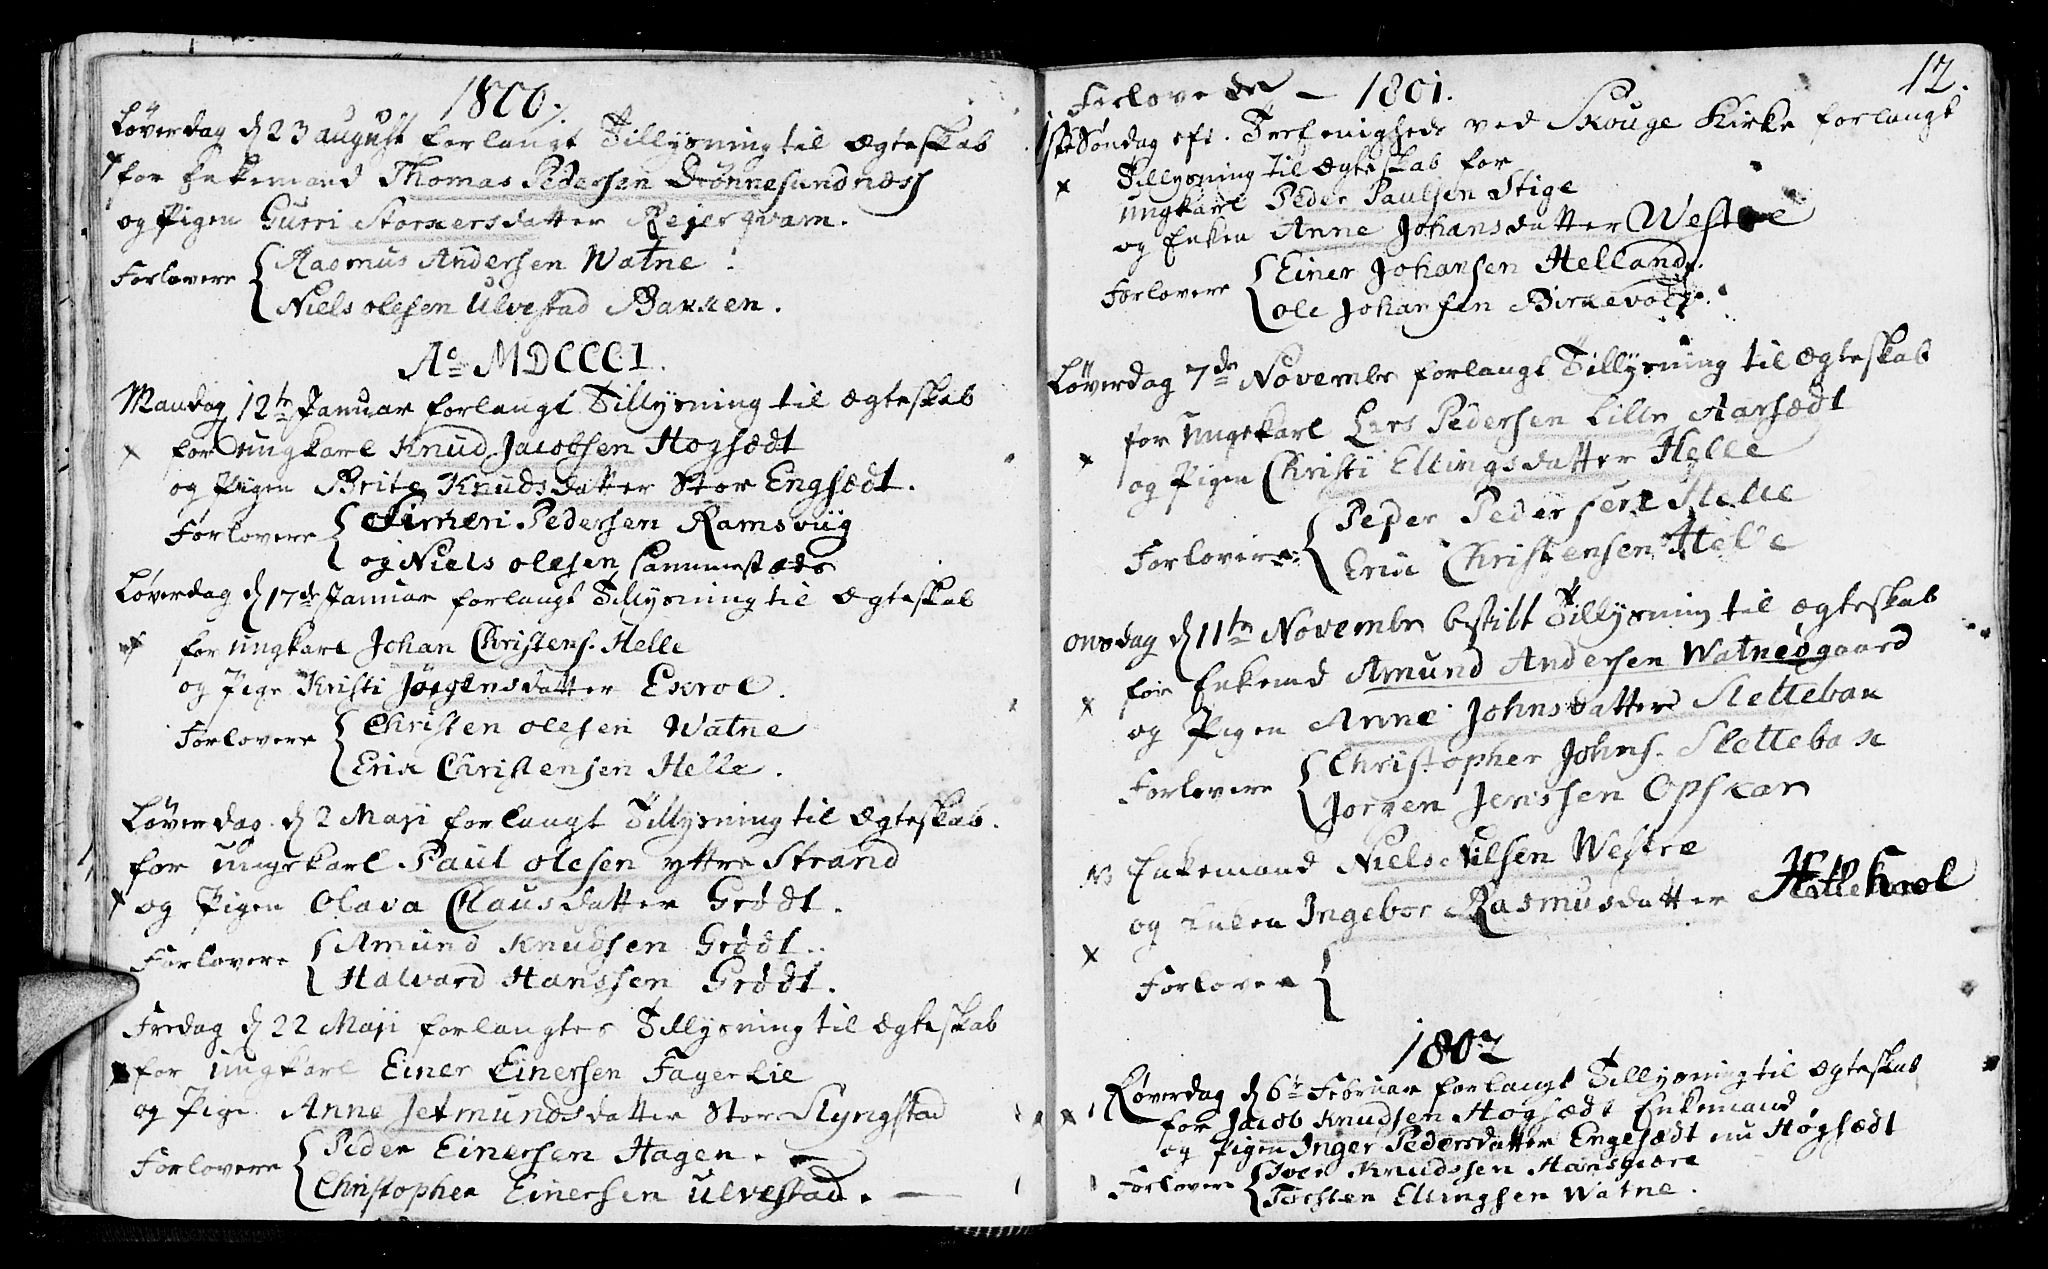 1800.
Løverdag d 23 august forlangt Tillysning til Ægteskab
for Enkemand Thomas Pedersen Drønnesundnæss
og Pigen Gurri Storkersdatter Rejerqvam.
Forlovere Rasmus Andersen Watne.
Niels olesen Ulvestad Bakken.
Ao MDCCCI.
Mandag 12te Januar forlangt Tillysning til Ægteskab
for ungkarl Knud Jacobsen Hogsædt
og Pigen Brite Knudsdatter Stor Engsædt.
Forlovere Simen Pedersen Ramsviig
og Niels olesen sammestæds
Løverdag d 17de Januar forlangt Tillysning til Ægteskab
for ungkarl Johan Christens. Helle
og Pige Kristi Jørgensdatter Exrol.
Forlovere Christen olesen Watne
Erik Christensen Helle.
Løverdag d 2 Maji forlangt Tillysning til Ægteskab.
for ungekarl Paul olesen yttre Strand
og Pigen Olava Clausdatter Grødt.
Forlovere Amund Knudsen Grødt.
Halvard Hanssen Grødt.
Fredag d 22 Maji forlangtes Tillysning til Ægteskab
for ungkarl Einer Einersen Fagerlie
og Pige Anne Jetmundsdatter Stor Slyngstad
Forlovere Peder Einersen Hagen.
Christopher Einersen Ulvestad.
12.
Forlovede – 1801.
1ste Søndag eft. Trefoenigheds ved Skouge Kirke forlangt
Tillysning til Ægteskab for
ungkarl Peder Paulsen Stige
og Enken Anne Johansdatter Westre
Forlovere Einer Johansen Helland.
ole Johansen Birkevold.
Løverdag 7de Novembr forlangt Tillysning til Ægteskab
for ungekarl Lars Pedersen Lille Aarsædt
og Pigen Christi Ellingsdatter Helle
Forlovere: Peder Pedersen Helle
Erik Christensen Helle
onsdag d 11te Novembr bstilt Tillysning til Ægteskab
for Enkemd Amund Andersen Watneøgaard
og Pigen Anne Johnsdatter Slettebak
Forlovere Christopher Johns. Slettebak
Jørgen Jenssen Opskar
Enkemand Niels Nilsen Westre
og Enken Ingebor Rasmusdatter Hellekrol
Forlovere
1802
Løverdag d 6te Februar forlangt Tillysning til Ægteskab
for Jacob Knudsen Hogsædt Enkemand,
og Pigen Inger Pedersdatter Engesædt nu Høgsædt
Forlovere Iver Knudssen Hansgiære
Torsten Ellingsen Watne.